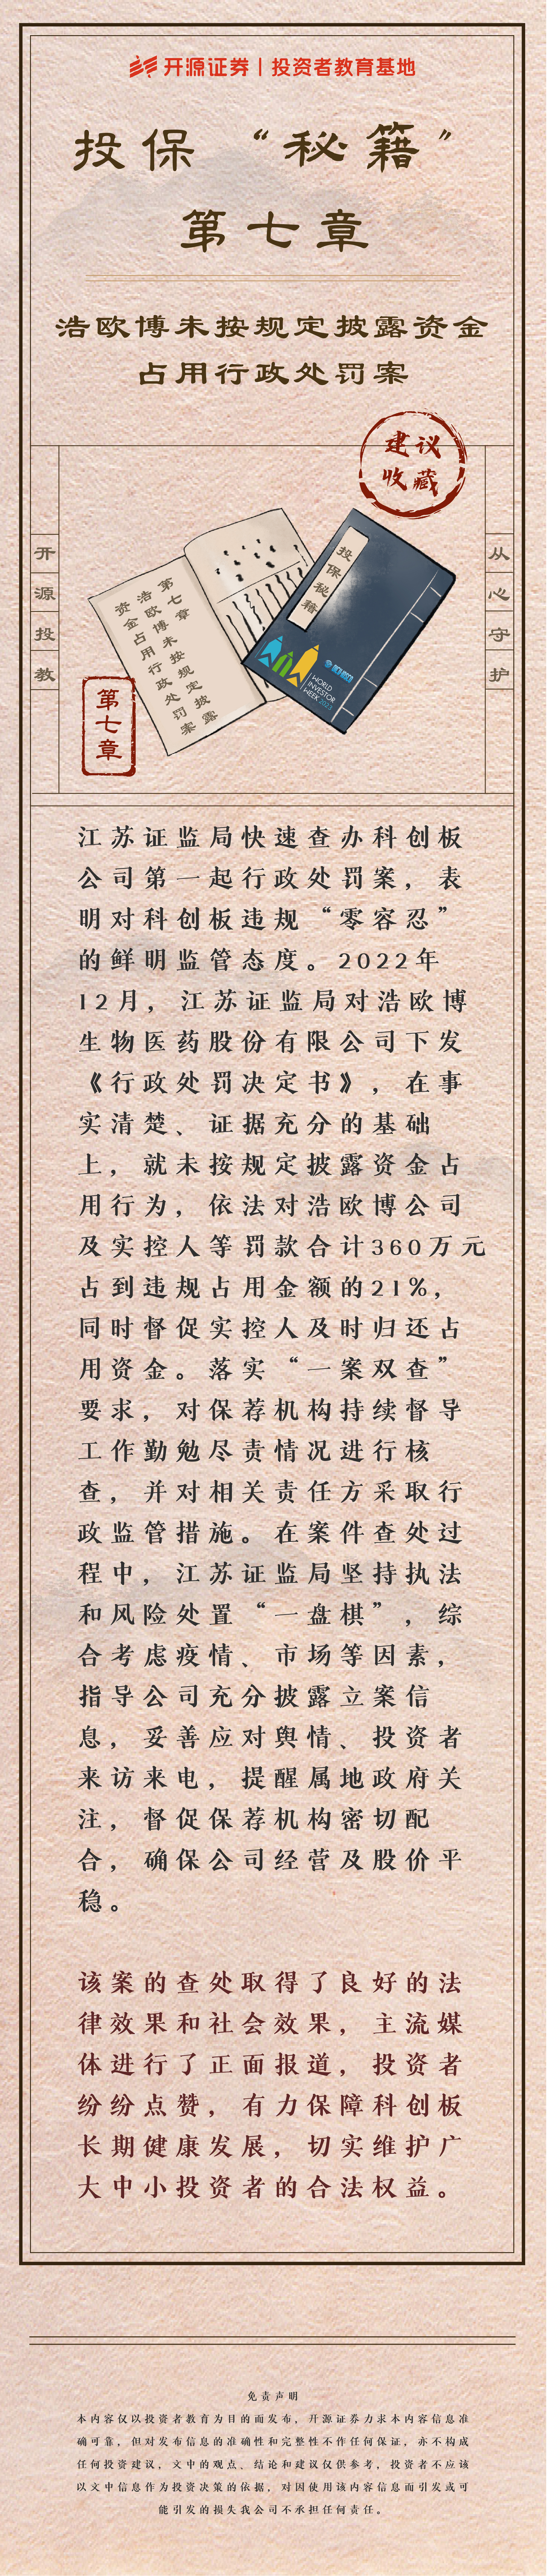 开源证券 | 投资者教育基地
投保“秘籍”
第七章
浩欧博未按规定披露资金
占用行政处罚案
建议
收藏
开源投教
从心守护
第七章
浩欧博未按规定披露
资金占用行政处罚案
投保秘籍
WORLD
INVESTOR
WEEK 2023
IOSCO
第七章
江苏证监局快速查办科创板
公司第一起行政处罚案，表
明对科创板违规“零容忍”
的鲜明监管态度。2022年
12月，江苏证监局对浩欧博
生物医药股份有限公司下发
《行政处罚决定书》，在事
实清楚、证据充分的基础
上，就未按规定披露资金占
用行为，依法对浩欧博公司
及实控人等罚款合计360万元
占到违规占用金额的21%，
同时督促实控人及时归还占
用资金。落实“一案双查”
要求，对保荐机构持续督导
工作勤勉尽责情况进行核
查，并对相关责任方采取行
政监管措施。在案件查处过
程中，江苏证监局坚持执法
和风险处置“一盘棋”，综
合考虑疫情、市场等因素，
指导公司充分披露立案信
息，妥善应对舆情、投资者
来访来电，提醒属地政府关
注，督促保荐机构密切配
合，确保公司经营及股价平
稳。
该案的查处取得了良好的法
律效果和社会效果，主流媒
体进行了正面报道，投资者
纷纷点赞，有力保障科创板
长期健康发展，切实维护广
大中小投资者的合法权益。
免责声明
本内容仅以投资者教育为目的而发布，开源证券力求本内容信息准
确可靠，但对发布信息的准确性和完整性不作任何保证，亦不构成
任何投资建议，文中的观点、结论和建议仅供参考，投资者不应该
以文中信息作为投资决策的依据，对因使用该内容信息而引发或可
能引发的损失我公司不承担任何责任。